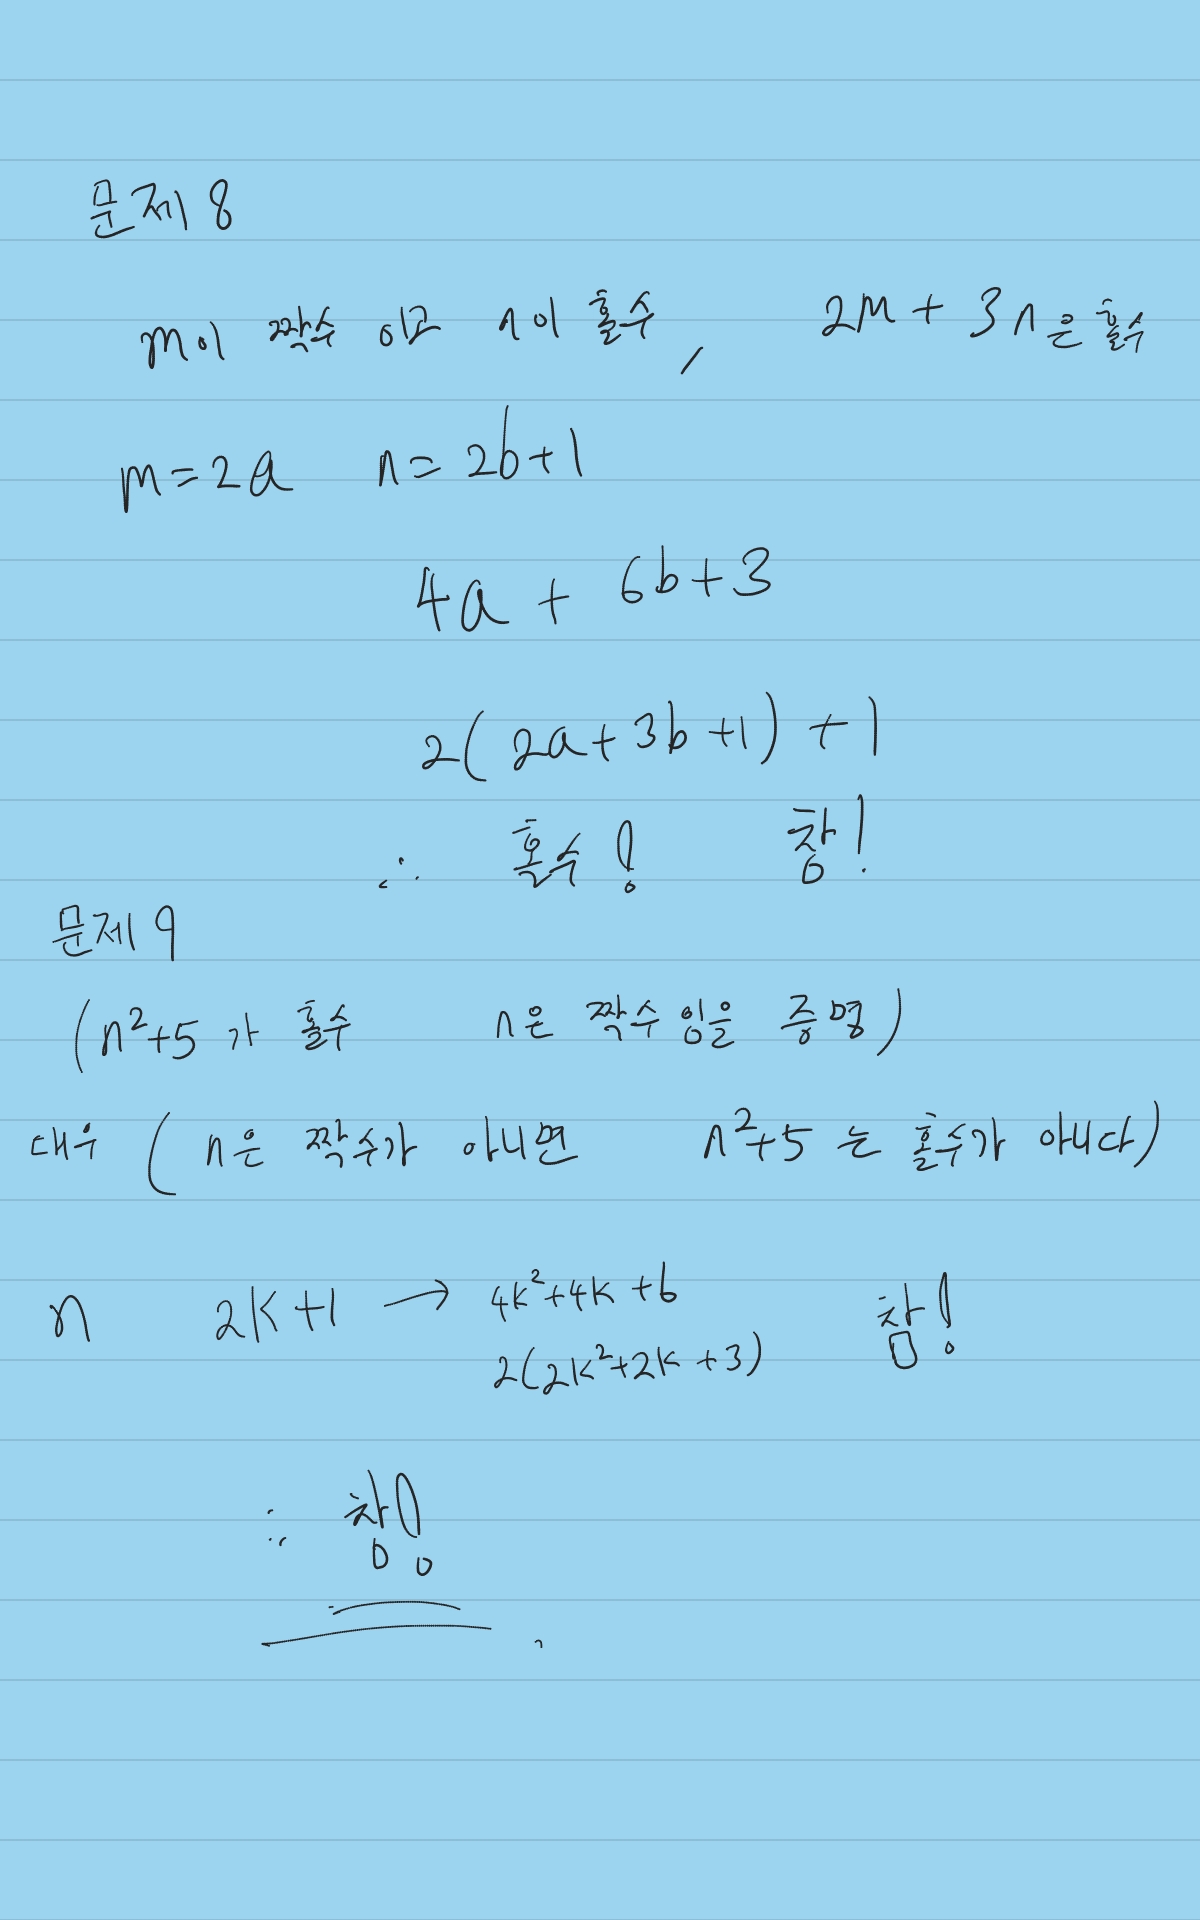 문제 8
m이 짝수 이고 n이 홀수, 2m + 3n은 홀수
m=2a n=2b+1
4a + 6b+3
2(2a+3b+1)+1
∴ 홀수! 참!
문제 9
(n²+5가 홀수 n은 짝수임을 증명)
대우 (n은 짝수가 아니면 n²+5는 홀수가 아니다)
n 2k+1 → 4k²+4k+6 참!
2(2k²+2k+3)
∴ 참!